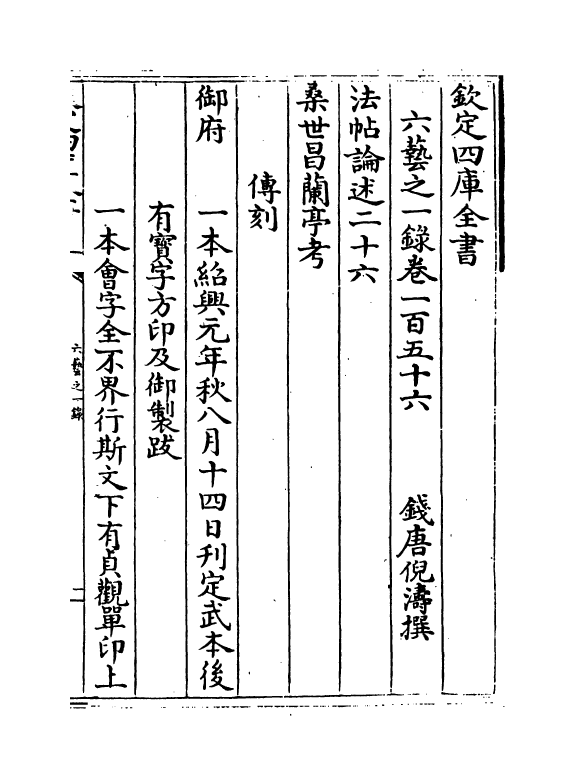 欽定四庫全書
六藝之一錄卷一百五十六
錢唐倪濤撰
法帖論述二十六
桑世昌蘭亭考
傳刻
御府 一本紹興元年秋八月十四日刋定武本後
有寳字方印及御製跋
一本會字全不界行斯文下有貞觀單印上
六藝之一錄